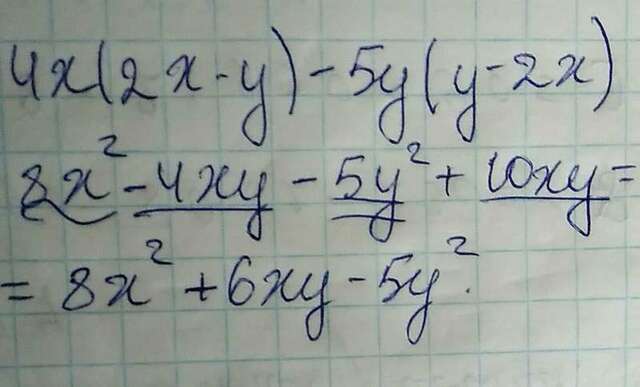 4x(2x-y)-5y(y-2x)
8x²-4xy-5y²+10xy=
=8x²+6xy-5y².